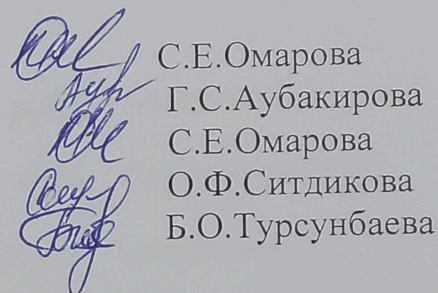 С.Е.Омарова
Г.С.Аубакирова
С.Е.Омарова
О.Ф.Ситдикова
Б.О.Турсунбаева